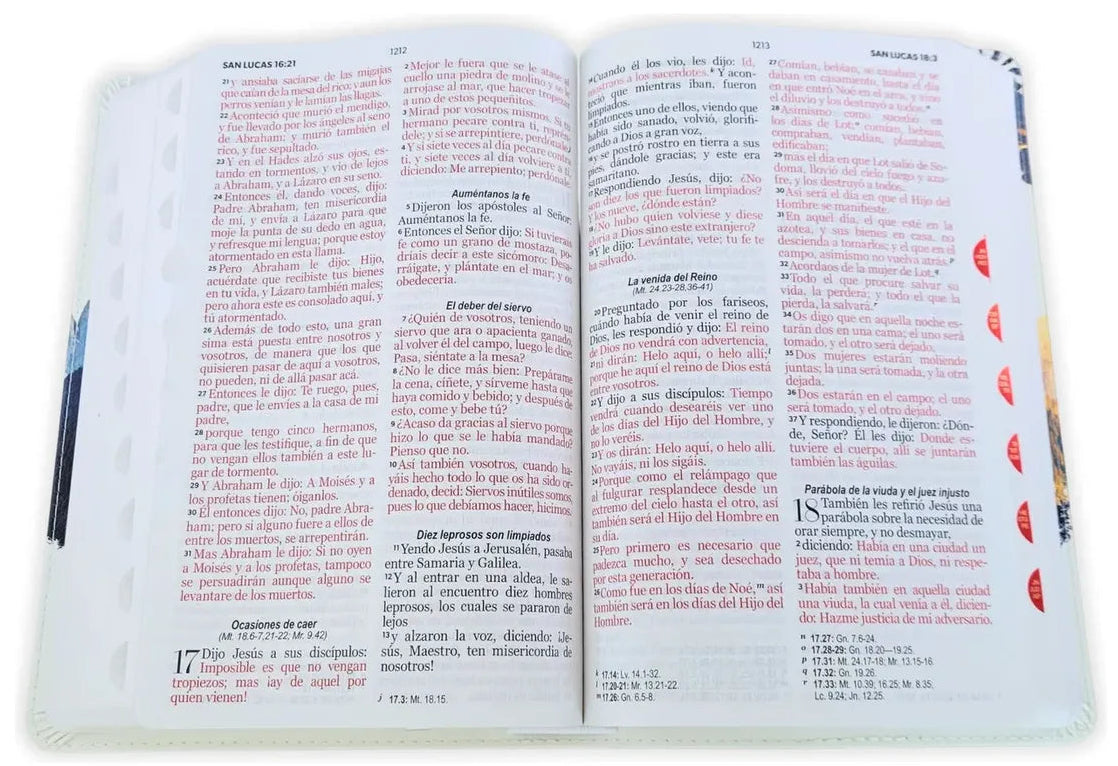 1212
SAN LUCAS 16:21
21 y ansiaba saciarse de las migajas
que caían de la mesa del rico; y aun los
perros venían y le lamían las llagas.
22 Aconteció que murió el mendigo,
y fue llevado por los ángeles al seno
de Abraham; y murió también el
rico, y fue sepultado.
23 Y en el Hades alzó sus ojos, es-
tando en tormentos, y vio de lejos
a Abraham, y a Lázaro en su seno.
24 Entonces él, dando voces, dijo:
Padre Abraham, ten misericordia
de mí, y envía a Lázaro para que
moje la punta de su dedo en agua,
y refresque mi lengua; porque estoy
atormentado en esta llama.
25 Pero Abraham le dijo: Hijo,
acuérdate que recibiste tus bienes
en tu vida, y Lázaro también males;
pero ahora este es consolado aquí, y
tú atormentado.
26 Además de todo esto, una gran
sima está puesta entre nosotros y
vosotros, de manera que los que
quisieren pasar de aquí a vosotros,
no pueden, ni de allá pasar acá.
27 Entonces le dijo: Te ruego, pues,
padre, que le envíes a la casa de mi
padre,
28 porque tengo cinco hermanos,
para que les testifique, a fin de que
no vengan ellos también a este lu-
gar de tormento.
29 Y Abraham le dijo: A Moisés y a
los profetas tienen; óiganlos.
30 Él entonces dijo: No, padre Abra-
ham; pero si alguno fuere a ellos de
entre los muertos, se arrepentirán.
31 Mas Abraham le dijo: Si no oyen
a Moisés y a los profetas, tampoco
se persuadirán aunque alguno se
levantare de los muertos.
Ocasiones de caer
(Mt. 18.6-7,21-22; Mr. 9.42)
17 Dijo Jesús a sus discípulos:
Imposible es que no vengan
tropiezos; mas ¡ay de aquel por
quien vienen!
2 Mejor le fuera que se le atase al
cuello una piedra de molino y se le
arrojase al mar, que hacer tropezar
a uno de estos pequeñitos.
3 Mirad por vosotros mismos. Si tu
hermano pecare contra ti, reprén-
dele; y si se arrepintiere, perdónale.j
4 Y si siete veces al día pecare contra
ti, y siete veces al día volviere a ti,
diciendo: Me arrepiento; perdónale.
Auméntanos la fe
5 Dijeron los apóstoles al Señor:
Auméntanos la fe.
6 Entonces el Señor dijo: Si tuvierais
fe como un grano de mostaza, po-
dríais decir a este sicómoro: Desa-
rráigate, y plántate en el mar; y os
obedecería.
El deber del siervo
7 ¿Quién de vosotros, teniendo un
siervo que ara o apacienta ganado,
al volver él del campo, luego le dice:
Pasa, siéntate a la mesa?
8 ¿No le dice más bien: Prepárame
la cena, cíñete, y sírveme hasta que
haya comido y bebido; y después de
esto, come y bebe tú?
9 ¿Acaso da gracias al siervo porque
hizo lo que se le había mandado?
Pienso que no.
10 Así también vosotros, cuando ha-
yáis hecho todo lo que os ha sido or-
denado, decid: Siervos inútiles somos,
pues lo que debíamos hacer, hicimos.
Diez leprosos son limpiados
11 Yendo Jesús a Jerusalén, pasaba
entre Samaria y Galilea.
12 Y al entrar en una aldea, le sa-
lieron al encuentro diez hombres
leprosos, los cuales se pararon de
lejos
13 y alzaron la voz, diciendo: ¡Je-
sús, Maestro, ten misericordia de
nosotros!
j 17.3: Mt. 18.15.
1213
SAN LUCAS 18:3
14 Cuando él los vio, les dijo: Id,
mostraos a los sacerdotes.k Y acon-
teció que mientras iban, fueron
limpiados.
15 Entonces uno de ellos, viendo que
había sido sanado, volvió, glorifi-
cando a Dios a gran voz,
16 y se postró rostro en tierra a sus
pies, dándole gracias; y este era
samaritano.
17 Respondiendo Jesús, dijo: ¿No
son diez los que fueron limpiados?
Y los nueve, ¿dónde están?
18 ¿No hubo quien volviese y diese
gloria a Dios sino este extranjero?
19 Y le dijo: Levántate, vete; tu fe te
ha salvado.
La venida del Reino
(Mt. 24.23-28,36-41)
20 Preguntado por los fariseos,
cuándo había de venir el reino de
Dios, les respondió y dijo: El reino
de Dios no vendrá con advertencia,
21 ni dirán: Helo aquí, o helo allí;l
porque he aquí el reino de Dios está
entre vosotros.
22 Y dijo a sus discípulos: Tiempo
vendrá cuando desearéis ver uno
de los días del Hijo del Hombre, y
no lo veréis.
23 Y os dirán: Helo aquí, o helo allí.
No vayáis, ni los sigáis.
24 Porque como el relámpago que
al fulgurar resplandece desde un
extremo del cielo hasta el otro, así
también será el Hijo del Hombre en
su día.
25 Pero primero es necesario que
padezca mucho, y sea desechado
por esta generación.
26 Como fue en los días de Noé,m así
también será en los días del Hijo del
Hombre.
k 17.14: Lv. 14.1-32.
l 17.20-21: Mr. 13.21-22.
m 17.26: Gn. 6.5-8.
27 Comían, bebían, se casaban y se
daban en casamiento, hasta el día
en que entró Noé en el arca, y vino
el diluvio y los destruyó a todos.n
28 Asimismo como sucedió en
los días de Lot;o comían, bebían,
compraban, vendían, plantaban,
edificaban;
29 mas el día en que Lot salió de So-
doma, llovió del cielo fuego y azu-
fre, y los destruyó a todos.
30 Así será el día en que el Hijo del
Hombre se manifieste.
31 En aquel día, el que esté en la
azotea, y sus bienes en casa, no
descienda a tomarlos; y el que en el
campo, asimismo no vuelva atrás.p
32 Acordaos de la mujer de Lot.q
33 Todo el que procure salvar su
vida, la perderá; y todo el que la
pierda, la salvará.r
34 Os digo que en aquella noche es-
tarán dos en una cama; el uno será
tomado, y el otro será dejado.
35 Dos mujeres estarán moliendo
juntas; la una será tomada, y la otra
dejada.
36 Dos estarán en el campo; el uno
será tomado, y el otro dejado.
37 Y respondiendo, le dijeron: ¿Dón-
de, Señor? Él les dijo: Donde es-
tuviere el cuerpo, allí se juntarán
también las águilas.
Parábola de la viuda y el juez injusto
18 También les refirió Jesús una
parábola sobre la necesidad de
orar siempre, y no desmayar,
2 diciendo: Había en una ciudad un
juez, que ni temía a Dios, ni respe-
taba a hombre.
3 Había también en aquella ciudad
una viuda, la cual venía a él, dicien-
do: Hazme justicia de mi adversario.
n 17.27: Gn. 7.6-24.
o 17.28-29: Gn. 18.20—19.25.
p 17.31: Mt. 24.17-18; Mr. 13.15-16.
q 17.32: Gn. 19.26.
r 17.33: Mt. 10.39; 16.25; Mr. 8.35;
Lc. 9.24; Jn. 12.25.